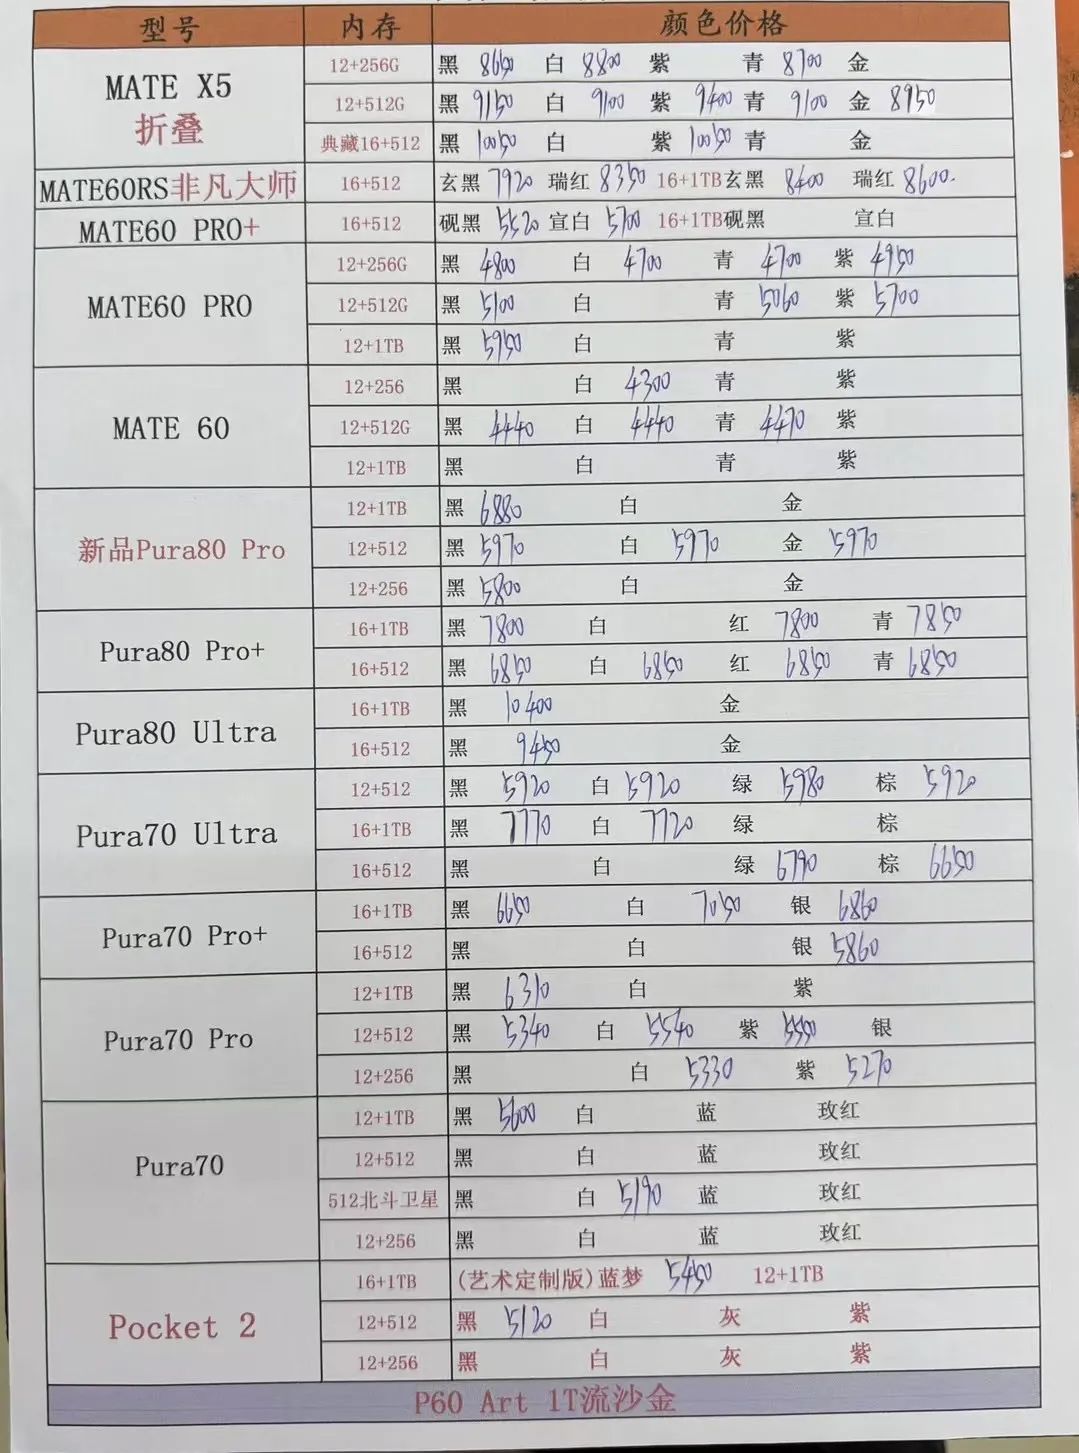 型号 内存 颜色价格
MATE X5 折叠
12+256G 黑 8650 白 8800 紫 青 8700 金
12+512G 黑 9150 白 9100 紫 9400 青 9100 金 8950
典藏16+512 黑 10050 白 紫 10050 青 金
MATE60RS非凡大师 16+512 玄黑 7920 瑞红 8350 16+1TB玄黑 8400 瑞红 8600.
MATE60 PRO+ 16+512 砚黑 5520 宣白 5700 16+1TB砚黑 宣白
MATE60 PRO
12+256G 黑 4800 白 4700 青 4700 紫 4950
12+512G 黑 5100 白 青 5060 紫 5700
12+1TB 黑 5950 白 青 紫
MATE 60
12+256 黑 白 4300 青 紫
12+512G 黑 4440 白 4440 青 4470 紫
12+1TB 黑 白 青 紫
新品Pura80 Pro
12+1TB 黑 6880 白 金
12+512 黑 5970 白 5970 金 5970
12+256 黑 5800 白 金
Pura80 Pro+
16+1TB 黑 7800 白 红 7800 青 7850
16+512 黑 6850 白 6850 红 6850 青 6850
Pura80 Ultra
16+1TB 黑 10400 金
16+512 黑 9450 金
Pura70 Ultra
12+512 黑 5920 白 5920 绿 5980 棕 5920
16+1TB 黑 7770 白 7720 绿 棕
16+512 黑 白 绿 6790 棕 6650
Pura70 Pro+
16+1TB 黑 6650 白 7050 银 6860
16+512 黑 白 银 5860
Pura70 Pro
12+1TB 黑 6310 白 紫
12+512 黑 5340 白 5540 紫 5550 银
12+256 黑 白 5330 紫 5270
Pura70
12+1TB 黑 5600 白 蓝 玫红
12+512 黑 白 蓝 玫红
512北斗卫星 黑 白 5190 蓝 玫红
12+256 黑 白 蓝 玫红
Pocket 2
16+1TB (艺术定制版)蓝梦 5450 12+1TB
12+512 黑 5120 白 灰 紫
12+256 黑 白 灰 紫
P60 Art 1T流沙金